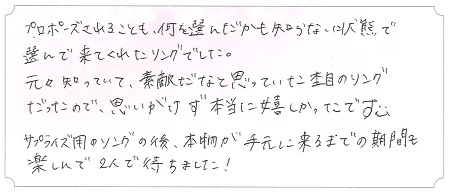 プロポーズされることも、何を選んだかも知らない状態で
選んで来てくれたリングでした。
元々知っていて、素敵だなと思っていた杢目のリング
だったので、思いがけず本当に嬉しかったです
サプライズ用のリングの後、本物が手元に来るまでの期間も
楽しんで2人で待ちました!